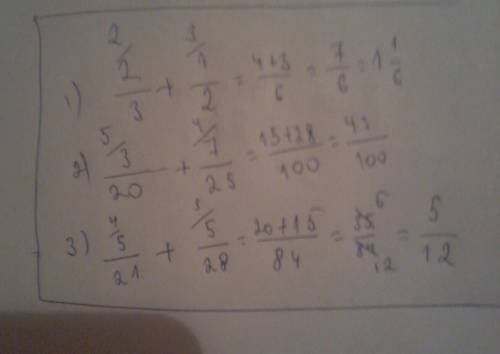 1) ²⁄2/3 + ³⁄1/2 = 4+3/6 = 7/6 = 1 1/6
2) ⁵⁄3/20 + ⁴⁄7/25 = 15+28/100 = 43/100
3) ⁴⁄5/21 + ³⁄5/28 = 20+15/84 = 35/84 5 12 = 5/12